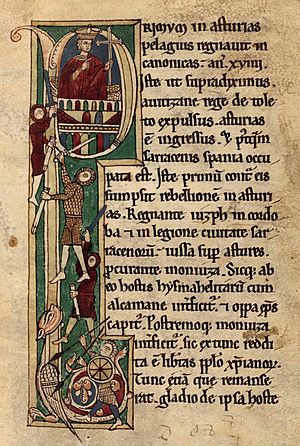 PRIMUM in asturias
pelagius regnavit in
canonicas. an. xviiii.
Iste ut supradiximus.
a uitizane rege de tole
to expulsus. asturias
ē ingressus. & p̄tq̄m
sarraceni spania occu
pata est. Iste primū cont̄ eis
sumpsit rebellionē in asturi
as. Regnante iuzph in cordo
ba & in legione ciuitate sar
racenorū. iussa sup̄ astures
p̄curante monniza. Sicq; ab
eo hostis hysmahelitarū cum
alcamane int̄ficit̄. & oppa ep̄s
capit̄. Postremoq; monniza
int̄ficit̄. sic ex tunc reddi
ta ē libt̄as pp̄lo xp̄ianoꝝ.
Tunc etiā que remanse
rat. gladio de ipsa hoste